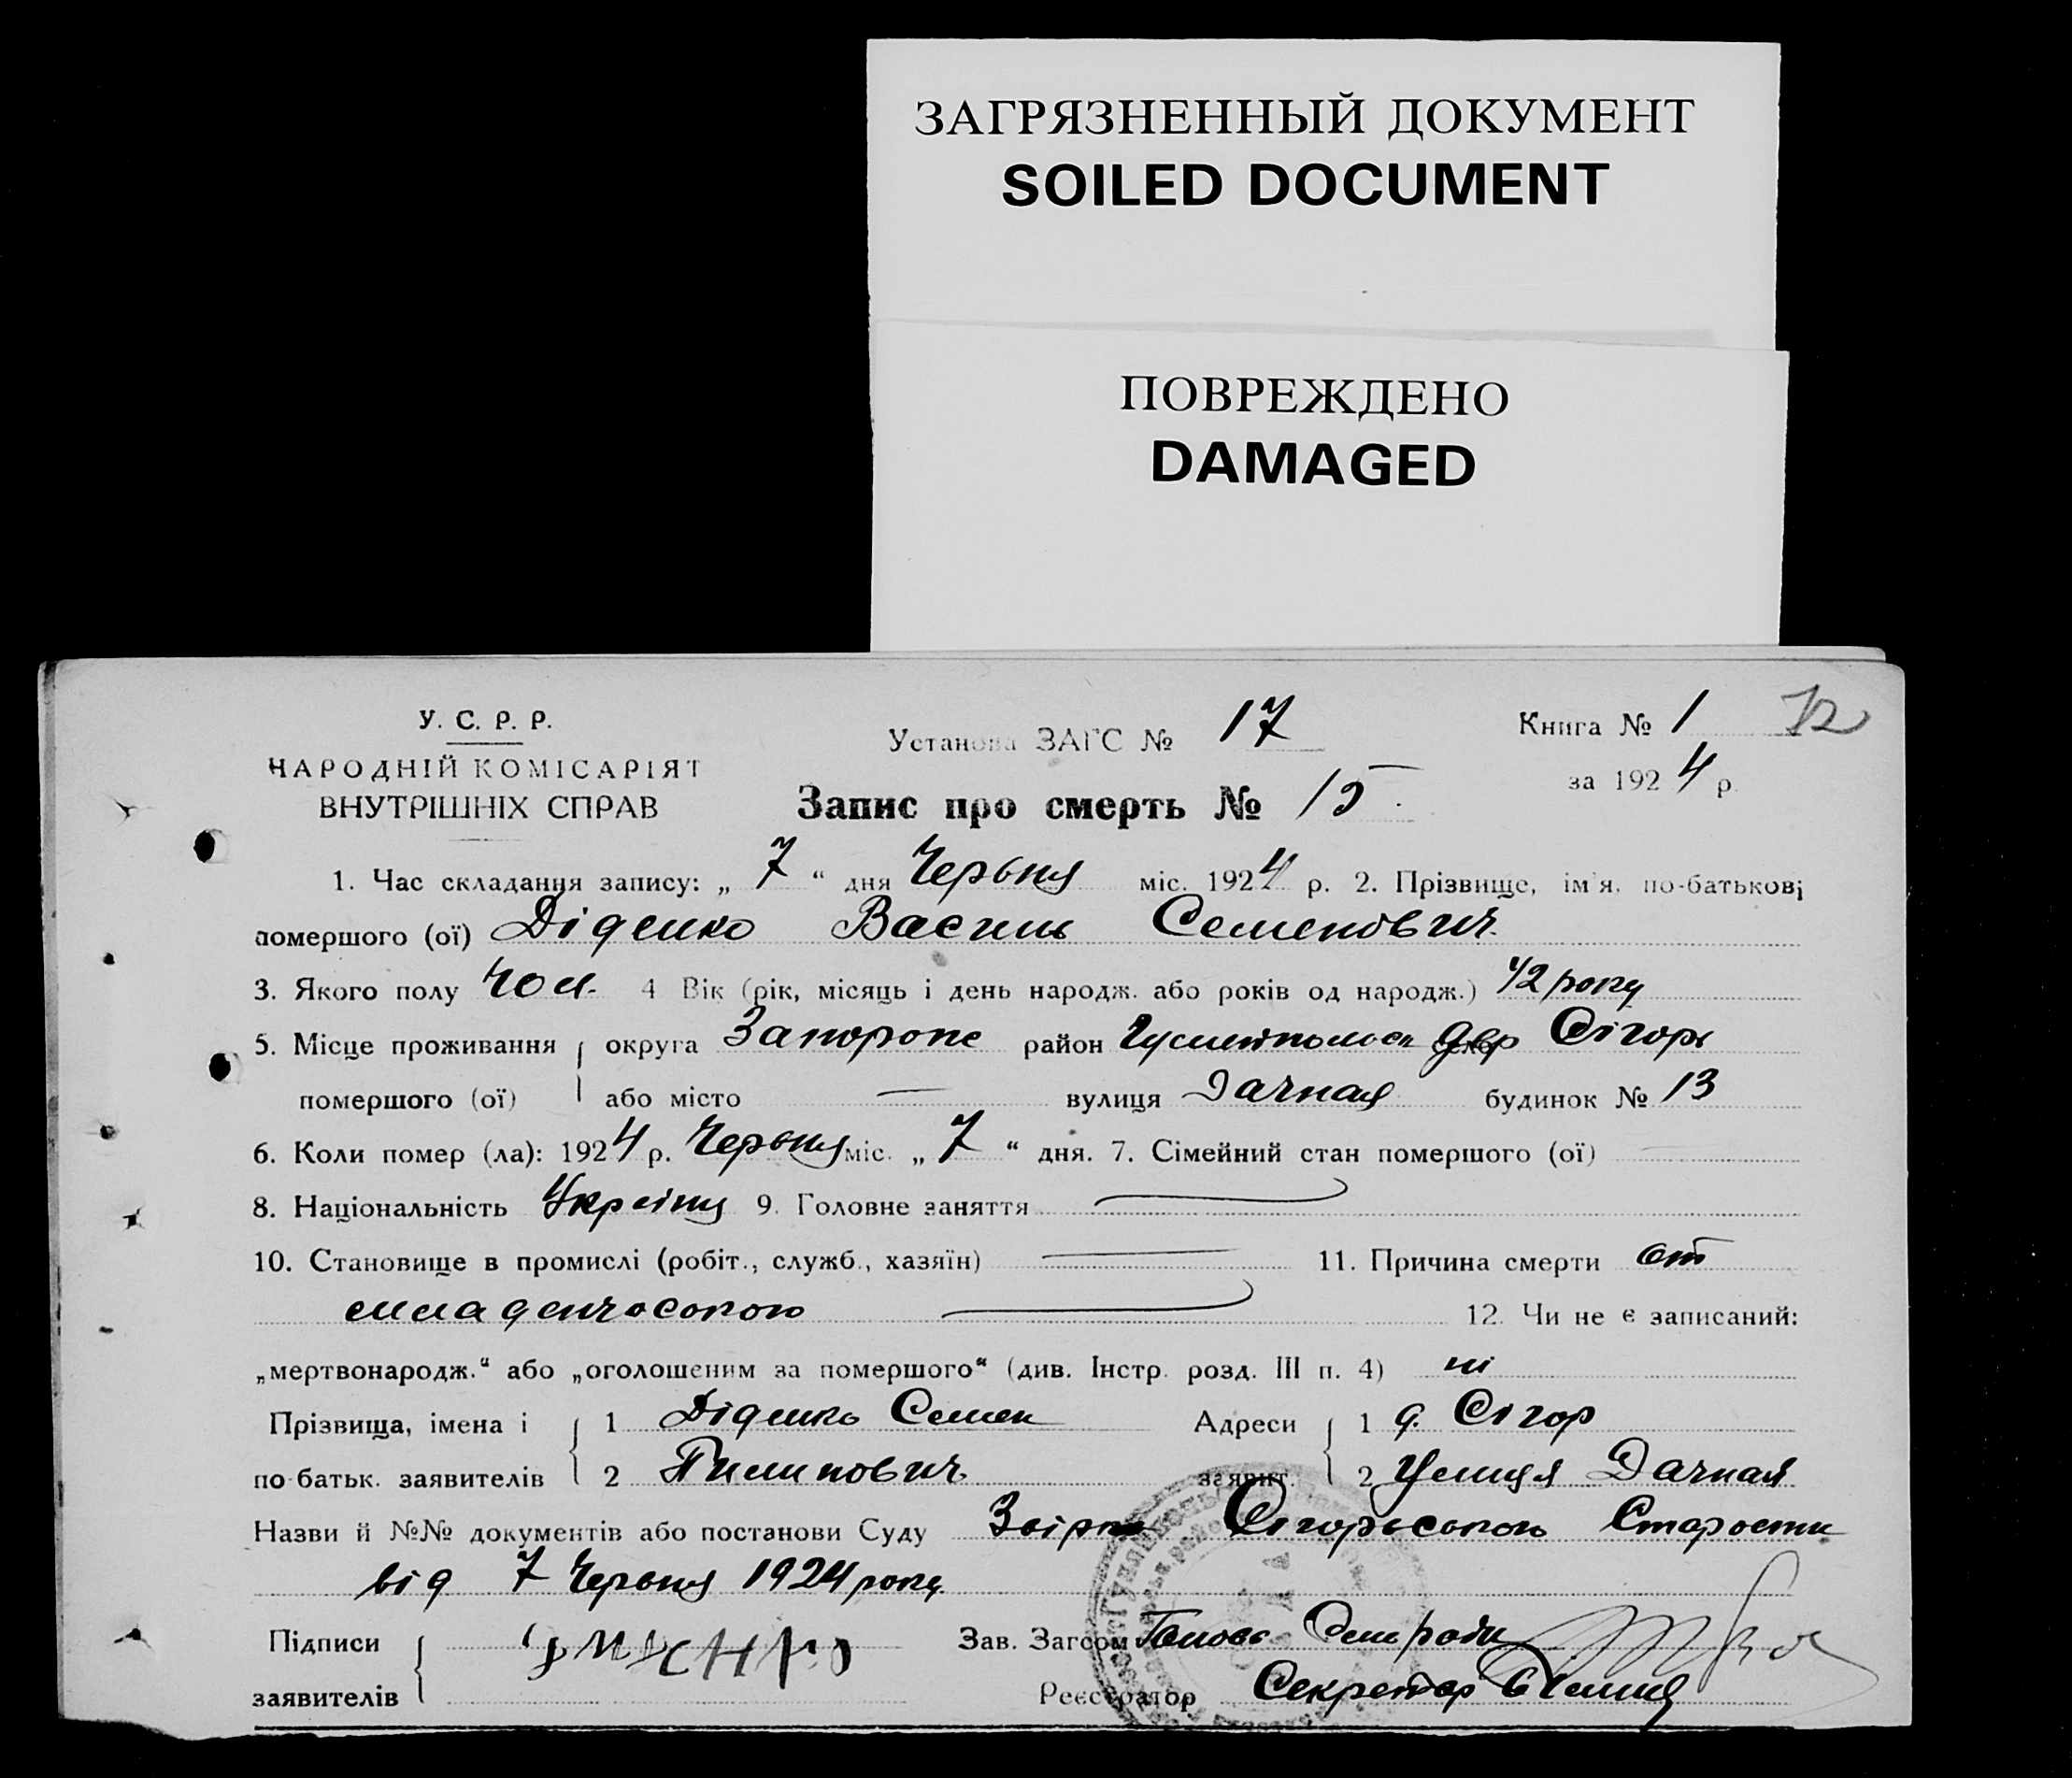 ЗАГРЯЗНЕННЫЙ ДОКУМЕНТ
SOILED DOCUMENT
ПОВРЕЖДЕНО
DAMAGED
У. С. Р. Р.
НАРОДНІЙ КОМІСАРІЯТ
ВНУТРІШНІХ СПРАВ
Установа ЗАГС № 17
Книга № 1 72
за 1924 р.
Запис про смерть № 15
1. Час складання запису: „ 7 “ дня Червня міс. 1924 р. 2. Прізвище, ім'я, по-батькові
помершого (ої) Діденко Василь Семенович
3. Якого полу чол. 4 Вік (рік, місяць і день народж. або років од народж.) 1/2 року
5. Місце проживання округа Запорож район дер Сігор
помершого (ої) або місто — вулиця Дачная будинок № 13
6. Коли помер (ла): 1924 р. Червня міс. „ 7 “ дня. 7. Сімейний стан помершого (ої)
8. Національність 9. Головне заняття
10. Становище в промислі (робіт., служб., хазяїн) 11. Причина смерти от
младенчоського 12. Чи не є записаний:
„мертвонародж.“ або „оголошеним за помершого“ (див. Інстр. розд. III п. 4) ні
Прізвища, імена і 1 Діденко Семен Адреси 1 д. Сігор
по-батьк. заявителів 2 Пилипович заявит. 2 Улиця Дачная
Назви й №№ документів або постанови Суду Старости
від 7 Червня 1924 року
Підписи Зав. Загсом Голова
заявителів Реєстратор Секретар